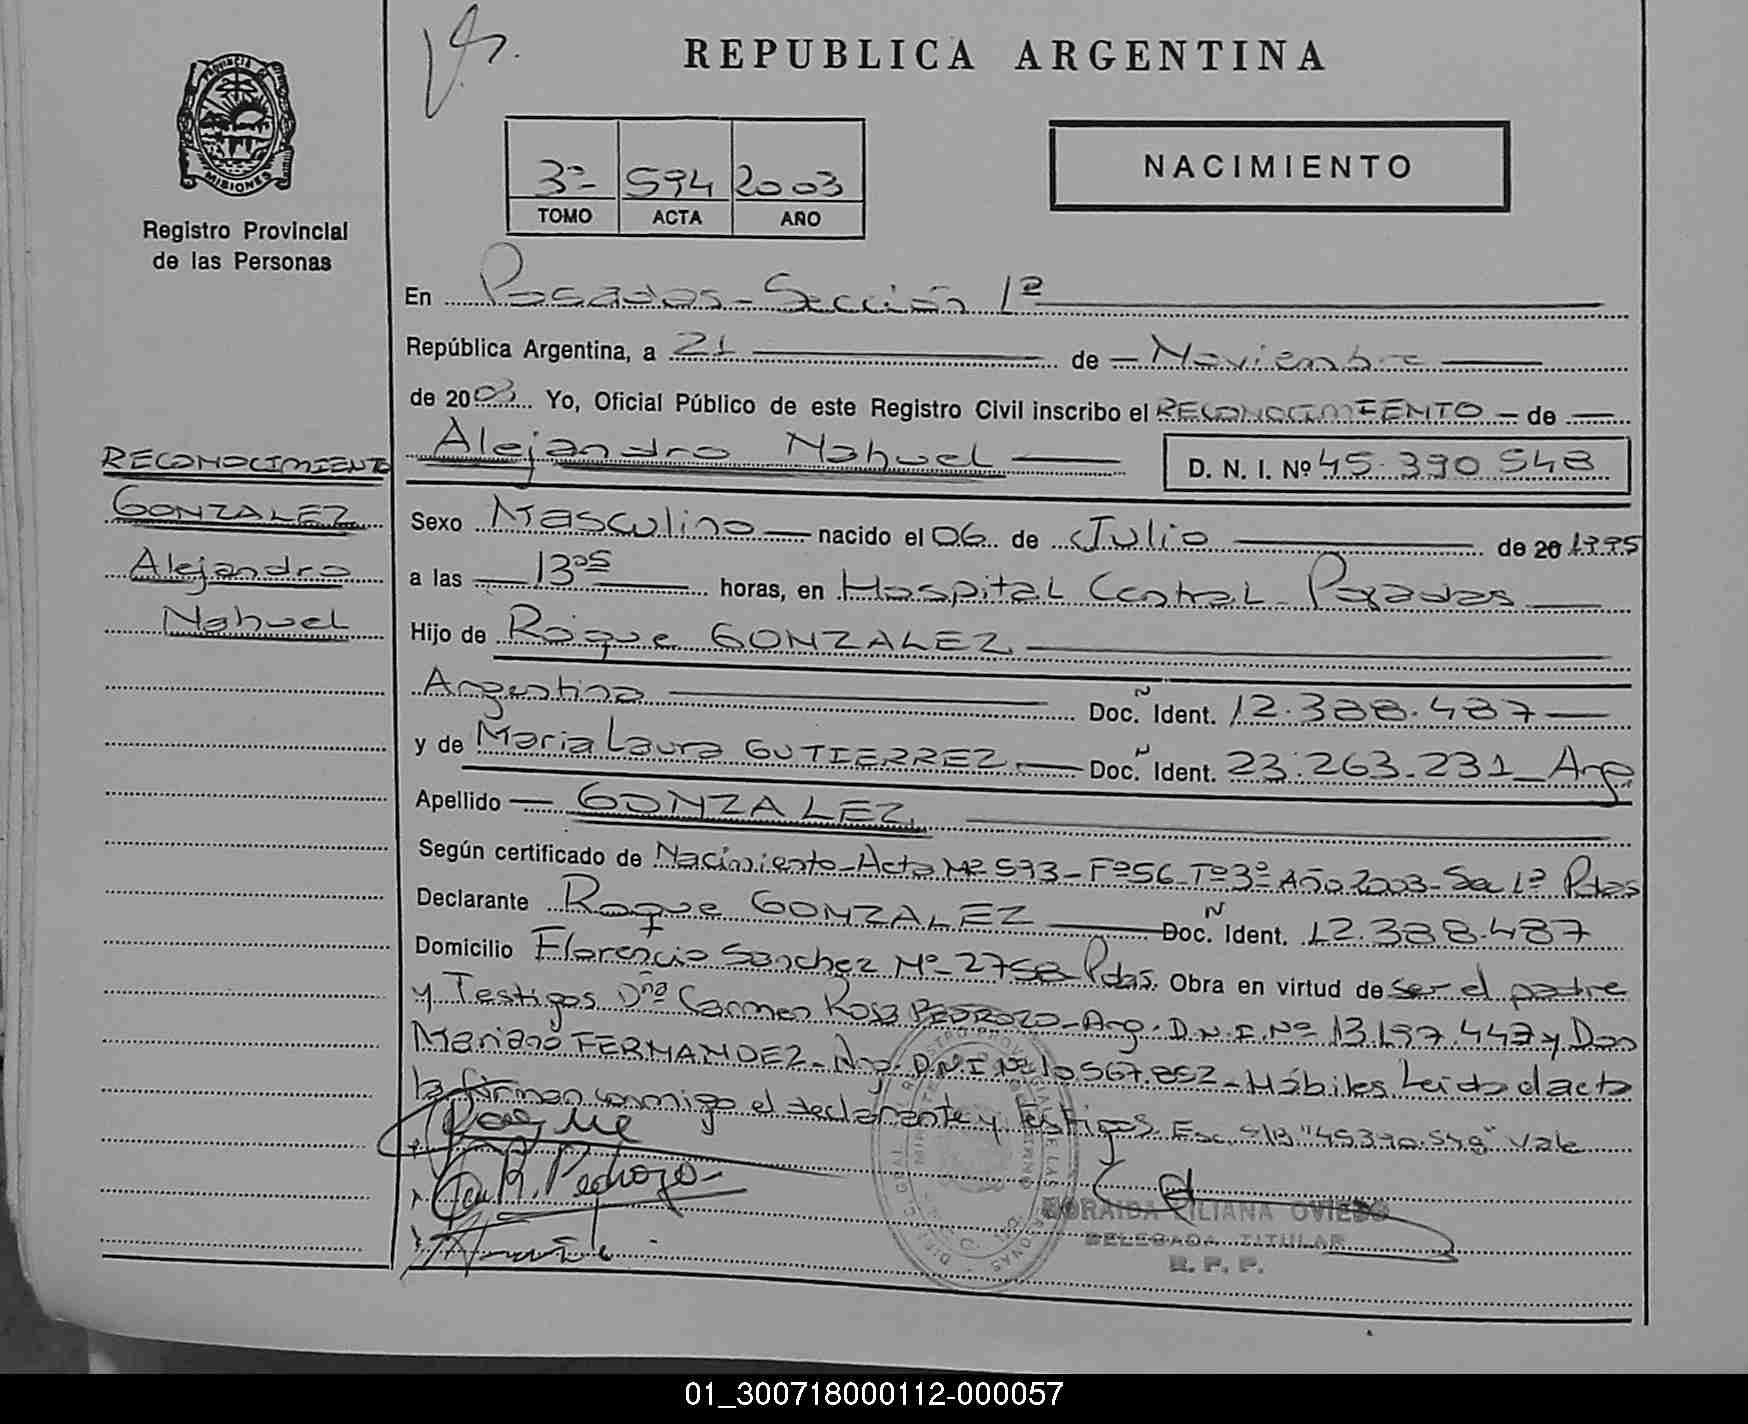 REPUBLICA ARGENTINA
PROVINCIA DE
MISIONES
Registro Provincial
de las Personas
3º 594 2003
TOMO ACTA AÑO
NACIMIENTO
En Posadas - Sección 1ª
República Argentina, a 21 de Noviembre
de 2003 Yo, Oficial Público de este Registro Civil inscribo el RECONOCIMIENTO de
Alejandro Nahuel D. N. I. Nº 45.390.548
RECONOCIMIENTO
GONZALEZ
Alejandro
Nahuel
Sexo Masculino nacido el 06 de Julio de 20 1995
a las 13 05 horas, en Hospital Central - Posadas
Hijo de Roque GONZALEZ
Argentino Doc. N Ident. 12.388.487
y de Maria Laura GUTIERREZ Doc. N Ident. 23.263.231 - Arg
Apellido GONZALEZ
Según certificado de Nacimiento - Acta Nº 593 - Fº 56 - Tº 3º Año 2003 - Sec 1ª Pdas
Declarante Roque GONZALEZ Doc. N Ident. 12.388.487
Domicilio Florencio Sanchez Nº 2758 - Pdas. Obra en virtud de ser el padre
y Testigos Dña Carmen Rosa PEDROZO - Arg. D.N.I. Nº 13.197.447 y Don
Mariano FERNANDEZ - Arg. D.N.I Nº 10.567.852 - Hábiles Leída el acta
la firman conmigo el declarante y testigos. Esc. S/B "45.390.548" Vale
Roque
R. Pedrozo
ZORAIDA LILIANA OVIEDO
DELEGADA TITULAR
R. P. P.
01_300718000112-000057